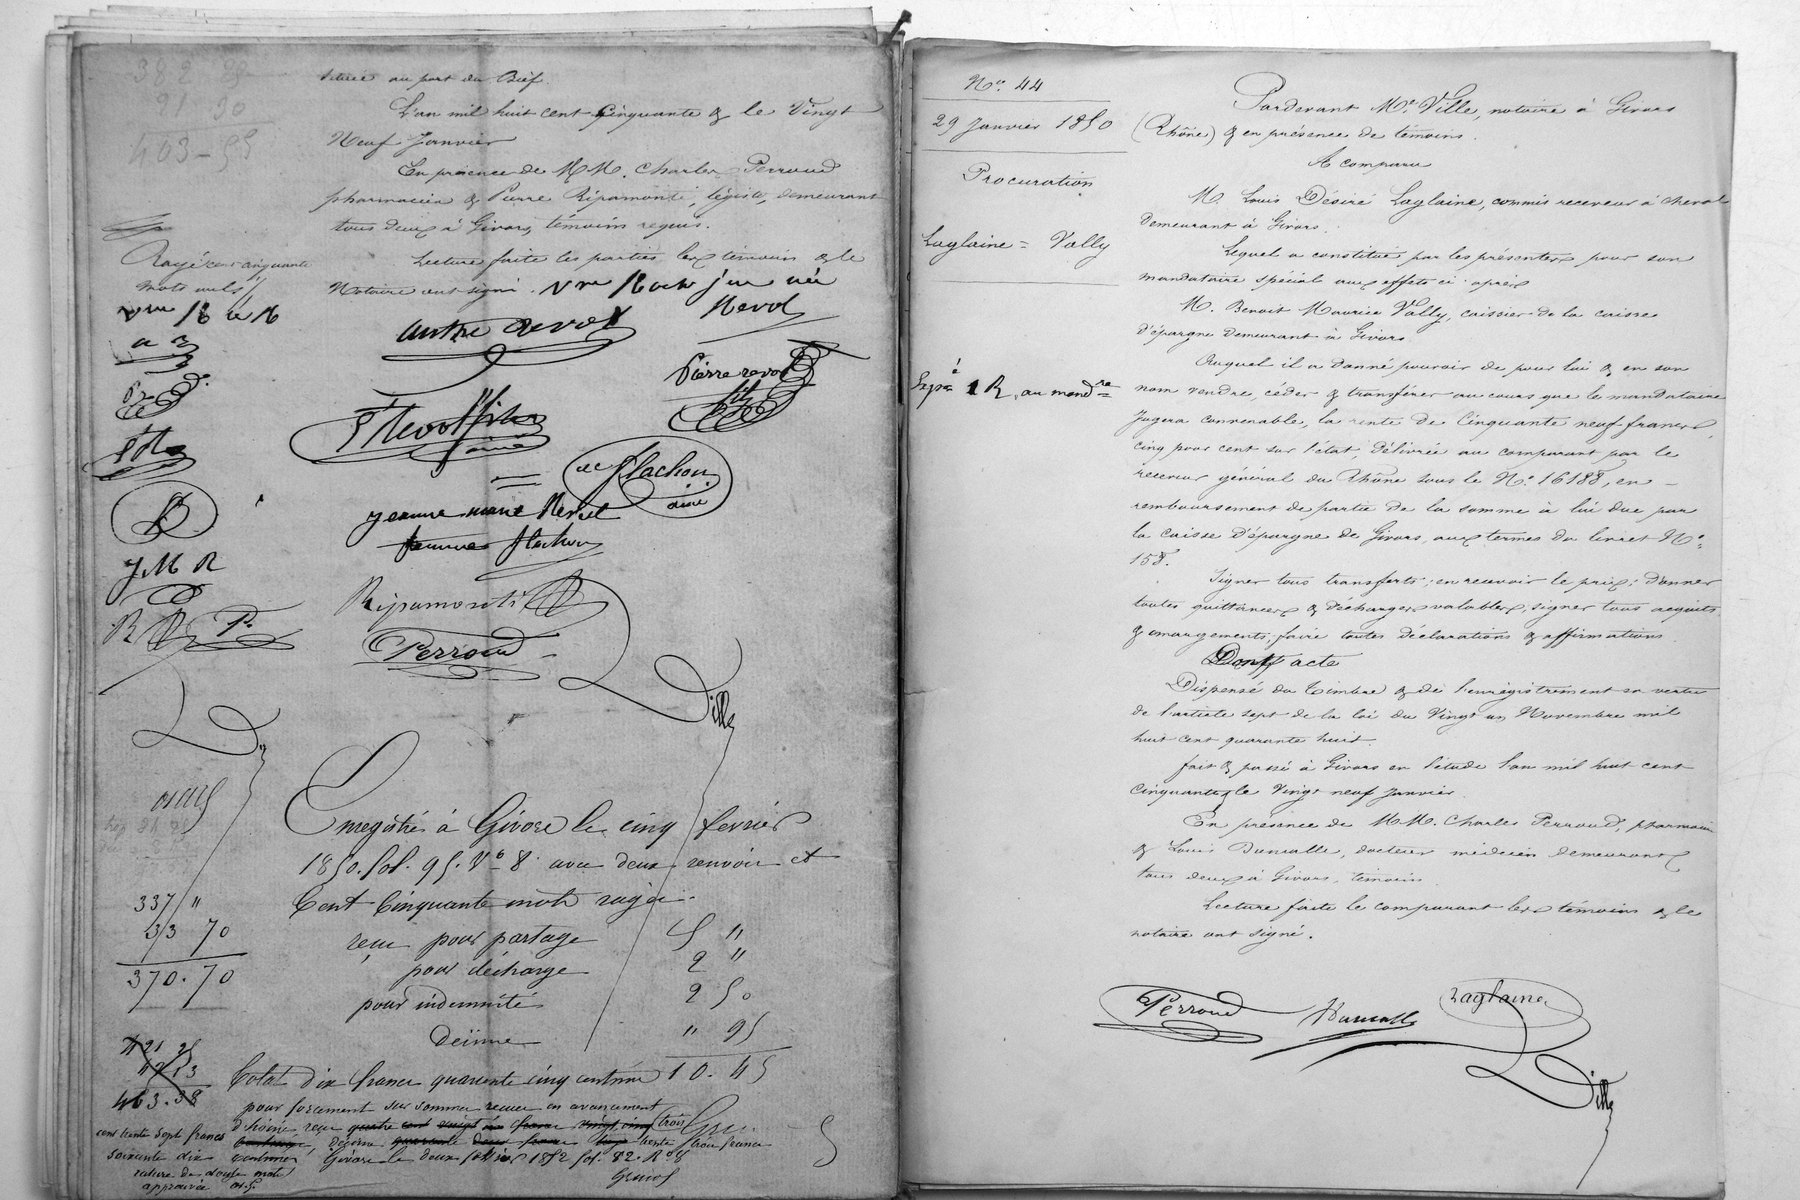 382 25
21 30
403-55
située au port du Bief.
L'an mil huit cent cinquante & le Vingt
Neuf Janvier
En présence de MM. Charles Perroud
pharmacien & Pierre Ripamonti, légiste, demeurant
tous deux à Givors, témoins requis.
Lecture faite les parties les témoins & le
Notaire ont signé.
Rayé cent cinquante
mots nuls
Revol
Pierre revol
fils
Flachon
ainé
jeanne marie Revol
femme flachon
J M R
Ripamonti
R R P.
Perroud
Ville
Enregistré à Givors le cinq fevrier
1850. fol. 95. Vo 8. avec deux renvois et
Cent Cinquante mots rayés.
reçu pour partage 5 "
pour décharge 2 "
pour indemnité 2 50
Dixime " 95
Total dix francs quarante cinq centimes 10.45
337 "
33 70
370.70
463.38
pour forcement sur somme reçue en avancement
d'hoirie reçu trois
cent trente sept francs décime trente trois francs
soixante dix centimes Givors le deux 1852 fol. 82. Ro 8
rature de douze mots
approuvée
No. 44
29 Janvier 1850
Procuration
Laglaine = Vally
Expé. 1 R. au mandre
Pardevant Me. Ville, notaire à Givors
(Rhône) & en présence de témoins.
A comparu
M. Louis Désiré Laglaine, commis receveur à cheval
demeurant à Givors.
Lequel a constitué par les présentes pour son
mandataire spécial aux effets ci après
M. Benoit Maurice Vally, caissier de la caisse
d'épargne demeurant à Givors
Auquel il a donné pouvoir de pour lui & en son
nom vendre, céder & transférer au cours que le mandataire
Jugera convenable, la rente de Cinquante neuf francs,
cinq pour cent sur l'état, délivrée au comparant par le
receveur général du Rhône sous le No. 16188, en
remboursement de partie de la somme à lui due par
la caisse d'épargne de Givors, aux termes du livret No.
158.
Signer tous transferts; en recevoir le prix; donner
toutes quittances & décharges valables; signer tous acquits
& émargements; faire toutes déclarations & affirmations
Dont acte
Dispensé du timbre & de l'enregistrement en vertu
de l'article sept de la loi du Vingt un Novembre mil
huit cent quarante huit.
fait & passé à Givors en l'étude l'an mil huit cent
Cinquante & le Vingt neuf Janvier.
En présence de MM. Charles Perroud, pharmacien
& Louis Dumalle, docteur médecin demeurant
tous deux à Givors, témoins
Lecture faite le comparant les témoins & le
notaire ont signé.
Perroud
Laglaine
Ville